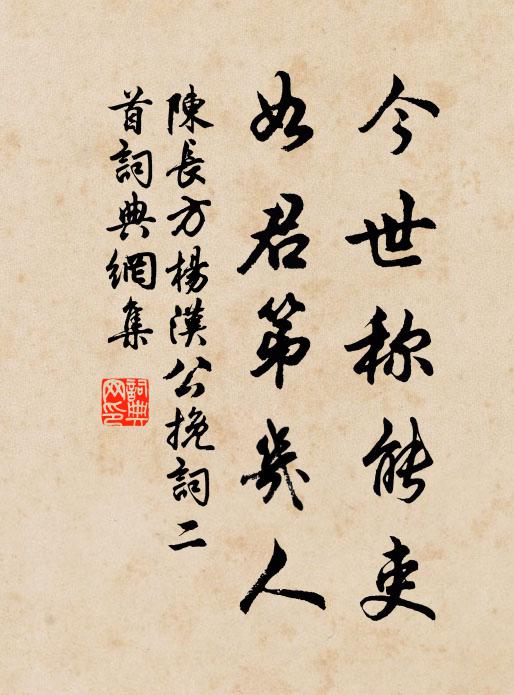 今世称能吏
如君第几人
陳長方楊漢公挽詞二
首詞典網集
詞典网印